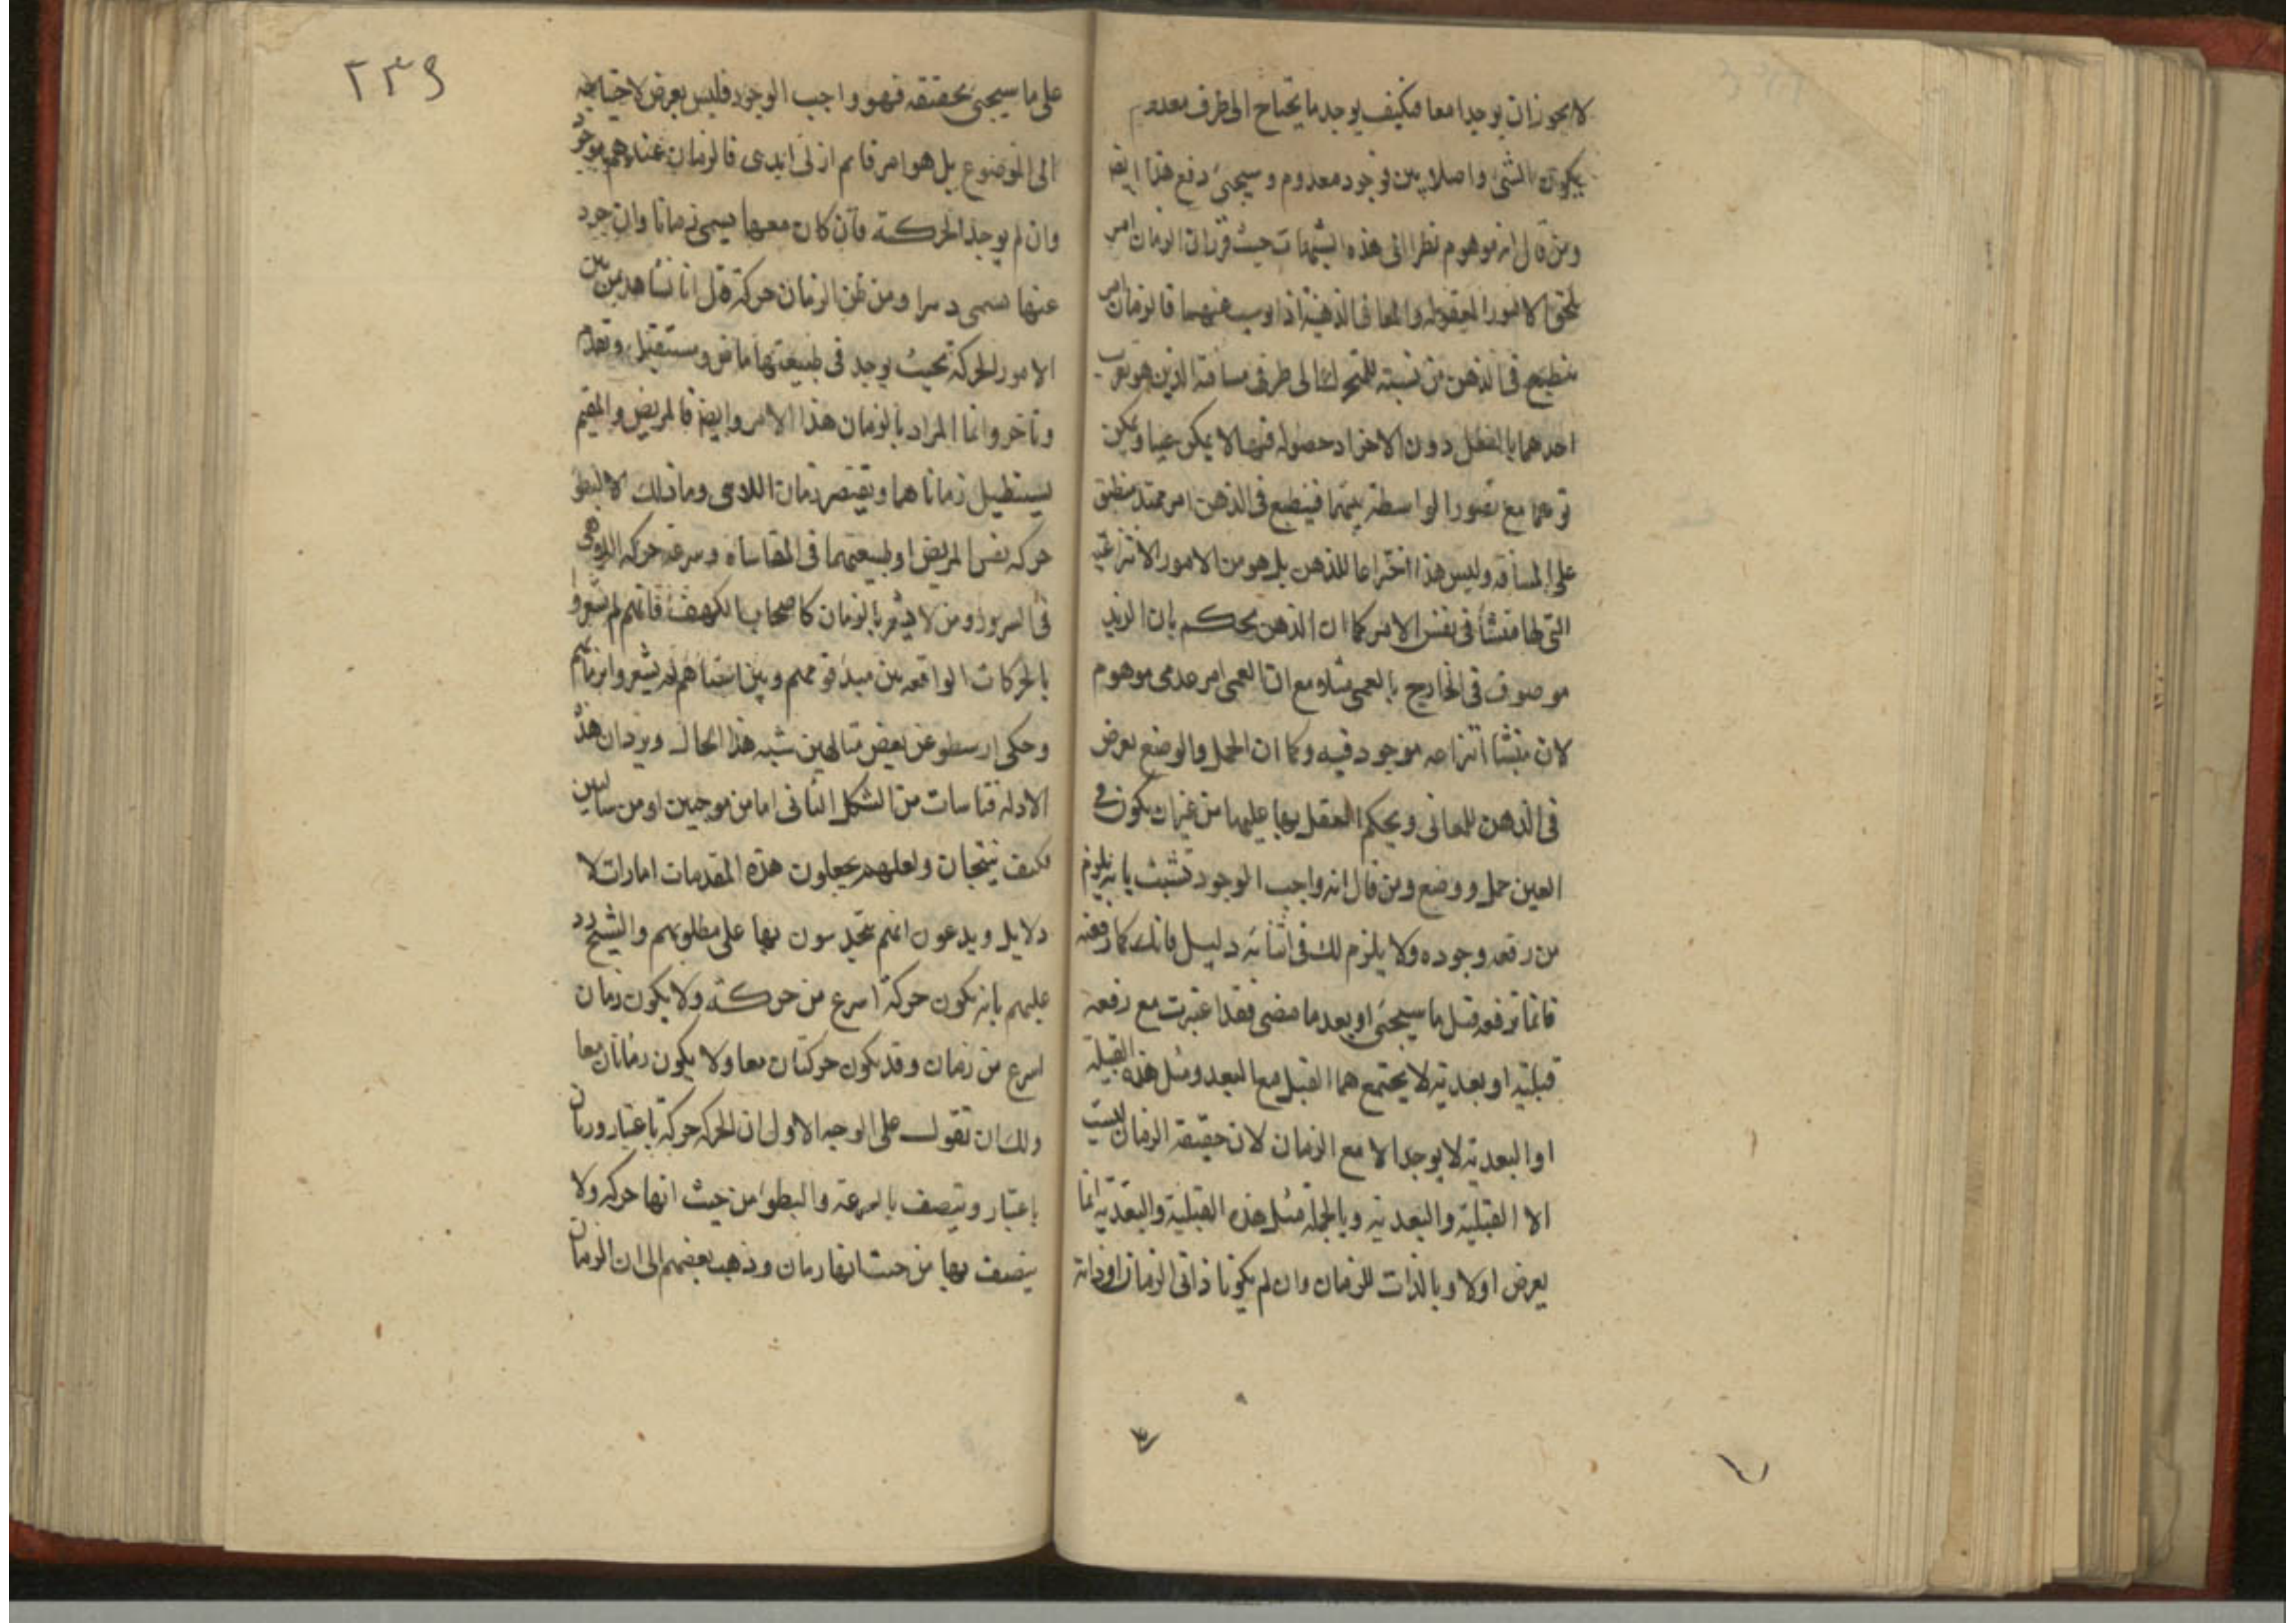 لا يجوز ان يوجدا معا فكيف يوجد ما يحتاج الى طرف معدوم
يكون الشئ واصلا بين موجود معدوم وسيجئ دفع هذا ايضا
ومن قال انه موهوم نظرا الى هذه الشبهات حيث قرر ان الزمان امر
يلحق الامور المعقوله والمعانى الذهنية اذا نسب فالزمان امر
منطبع فى الذهن من نسبته المتحرك الى طرفى مسافة الذين هو بقرب
احدهما بالفعل دون الاخر اذ حصوله فيهما لا يمكن عينا ويمكن
توهما مع تصور الواسطة بينهما فينطبع فى الذهن امر ممتد منطبق
على المسافه وليس هذا اختراعا للذهن بل هو من الامور الانتزاعية
التى لها منشأ فى نفس الامر كما ان الذهن يحكم بان الزيد
موصوف فى الخارج بالعمى مثلا مع ان العمى امر عدمى موهوم
لان منشا انتزاعه موجود فيه وكما ان الحمل والوضع يعرض
فى الذهن للمعانى ويحكم العقل بها عليها من غير ان يكون فى
العين حمل ووضع ومن قال انه واجب الوجود تشبث بانه يلزم
من رفعه وجوده ولا يلزم لك فى اثباته دليل فانك كما رفعته
فانما ترفعه قبل ما سيجئ او بعد ما مضى فقد اعتبرت مع رفعه
قبلية او بعدية لا يجتمع هما القبل مع البعد ومثل هذه القبلية
او البعدية لا يوجد الا مع الزمان لان حقيقة الزمان ليست
الا القبلية والبعدية وبالجملة مثل هذه القبلية والبعدية انما
يعرض اولا وبالذات للزمان وان لم يكونا ذاتى الزمان او ذاته
٢٣٩
على ما سيجئ تحقيقه فهو واجب الوجود فليس بعرض لاحتياجه
الى الموضوع بل هو امر قايم ازلى ابدى فالزمان عندهم موجود
وان لم يوجد الحركة فان كان معها يسمى زمانا وان جرد
عنها يسمى دهرا ومن ظن الزمان حركة قال انا نشاهد من بين
الامور الحركة بحيث يوجد فى طبيعتها ماض ومستقبل وتقدم
وتاخر وانما المراد بالزمان هذا الامر وايضا فالمريض والمقيم
يستطيل زماناهما ويقتصر زمان اللاهى وما ذلك الا لبطؤ
حركه نفس المريض او طبيعتهما فى المقاساة وسرعة حركه اللاهى
فى السرور ومن لا يشعر بالزمان كاصحاب الكهف فانهم لم يشعروا
بالحركات الواقعه بين مبدء نومهم وبين انتباههم لم يشعروا بزمانهم
وحكى ارسطو عن بعض متالهين شبه هذا الحال ويرد ان هذه
الادله قياسات من الشكل الثانى اما من موجبين او من سالبين
فكيف ينتجان ولعلهم يجعلون هذه المقدمات امارات لا
دلايل ويدعون انهم يتحدسون بها على مطلوبهم والشيخ رد
عليهم بانه يكون حركة اسرع من حركة ولا يكون زمان
اسرع من زمان وقد يكون حركتان معا ولا يكون زمانان معا
ولك ان تقول على الوجه الاول ان الحركه حركة باعتبار وزمان
باعتبار ويتصف بالسرعة والبطوء من حيث انها حركه ولا
يتصف بها من حيث انها زمان وذهب بعضهم الى ان الزمان